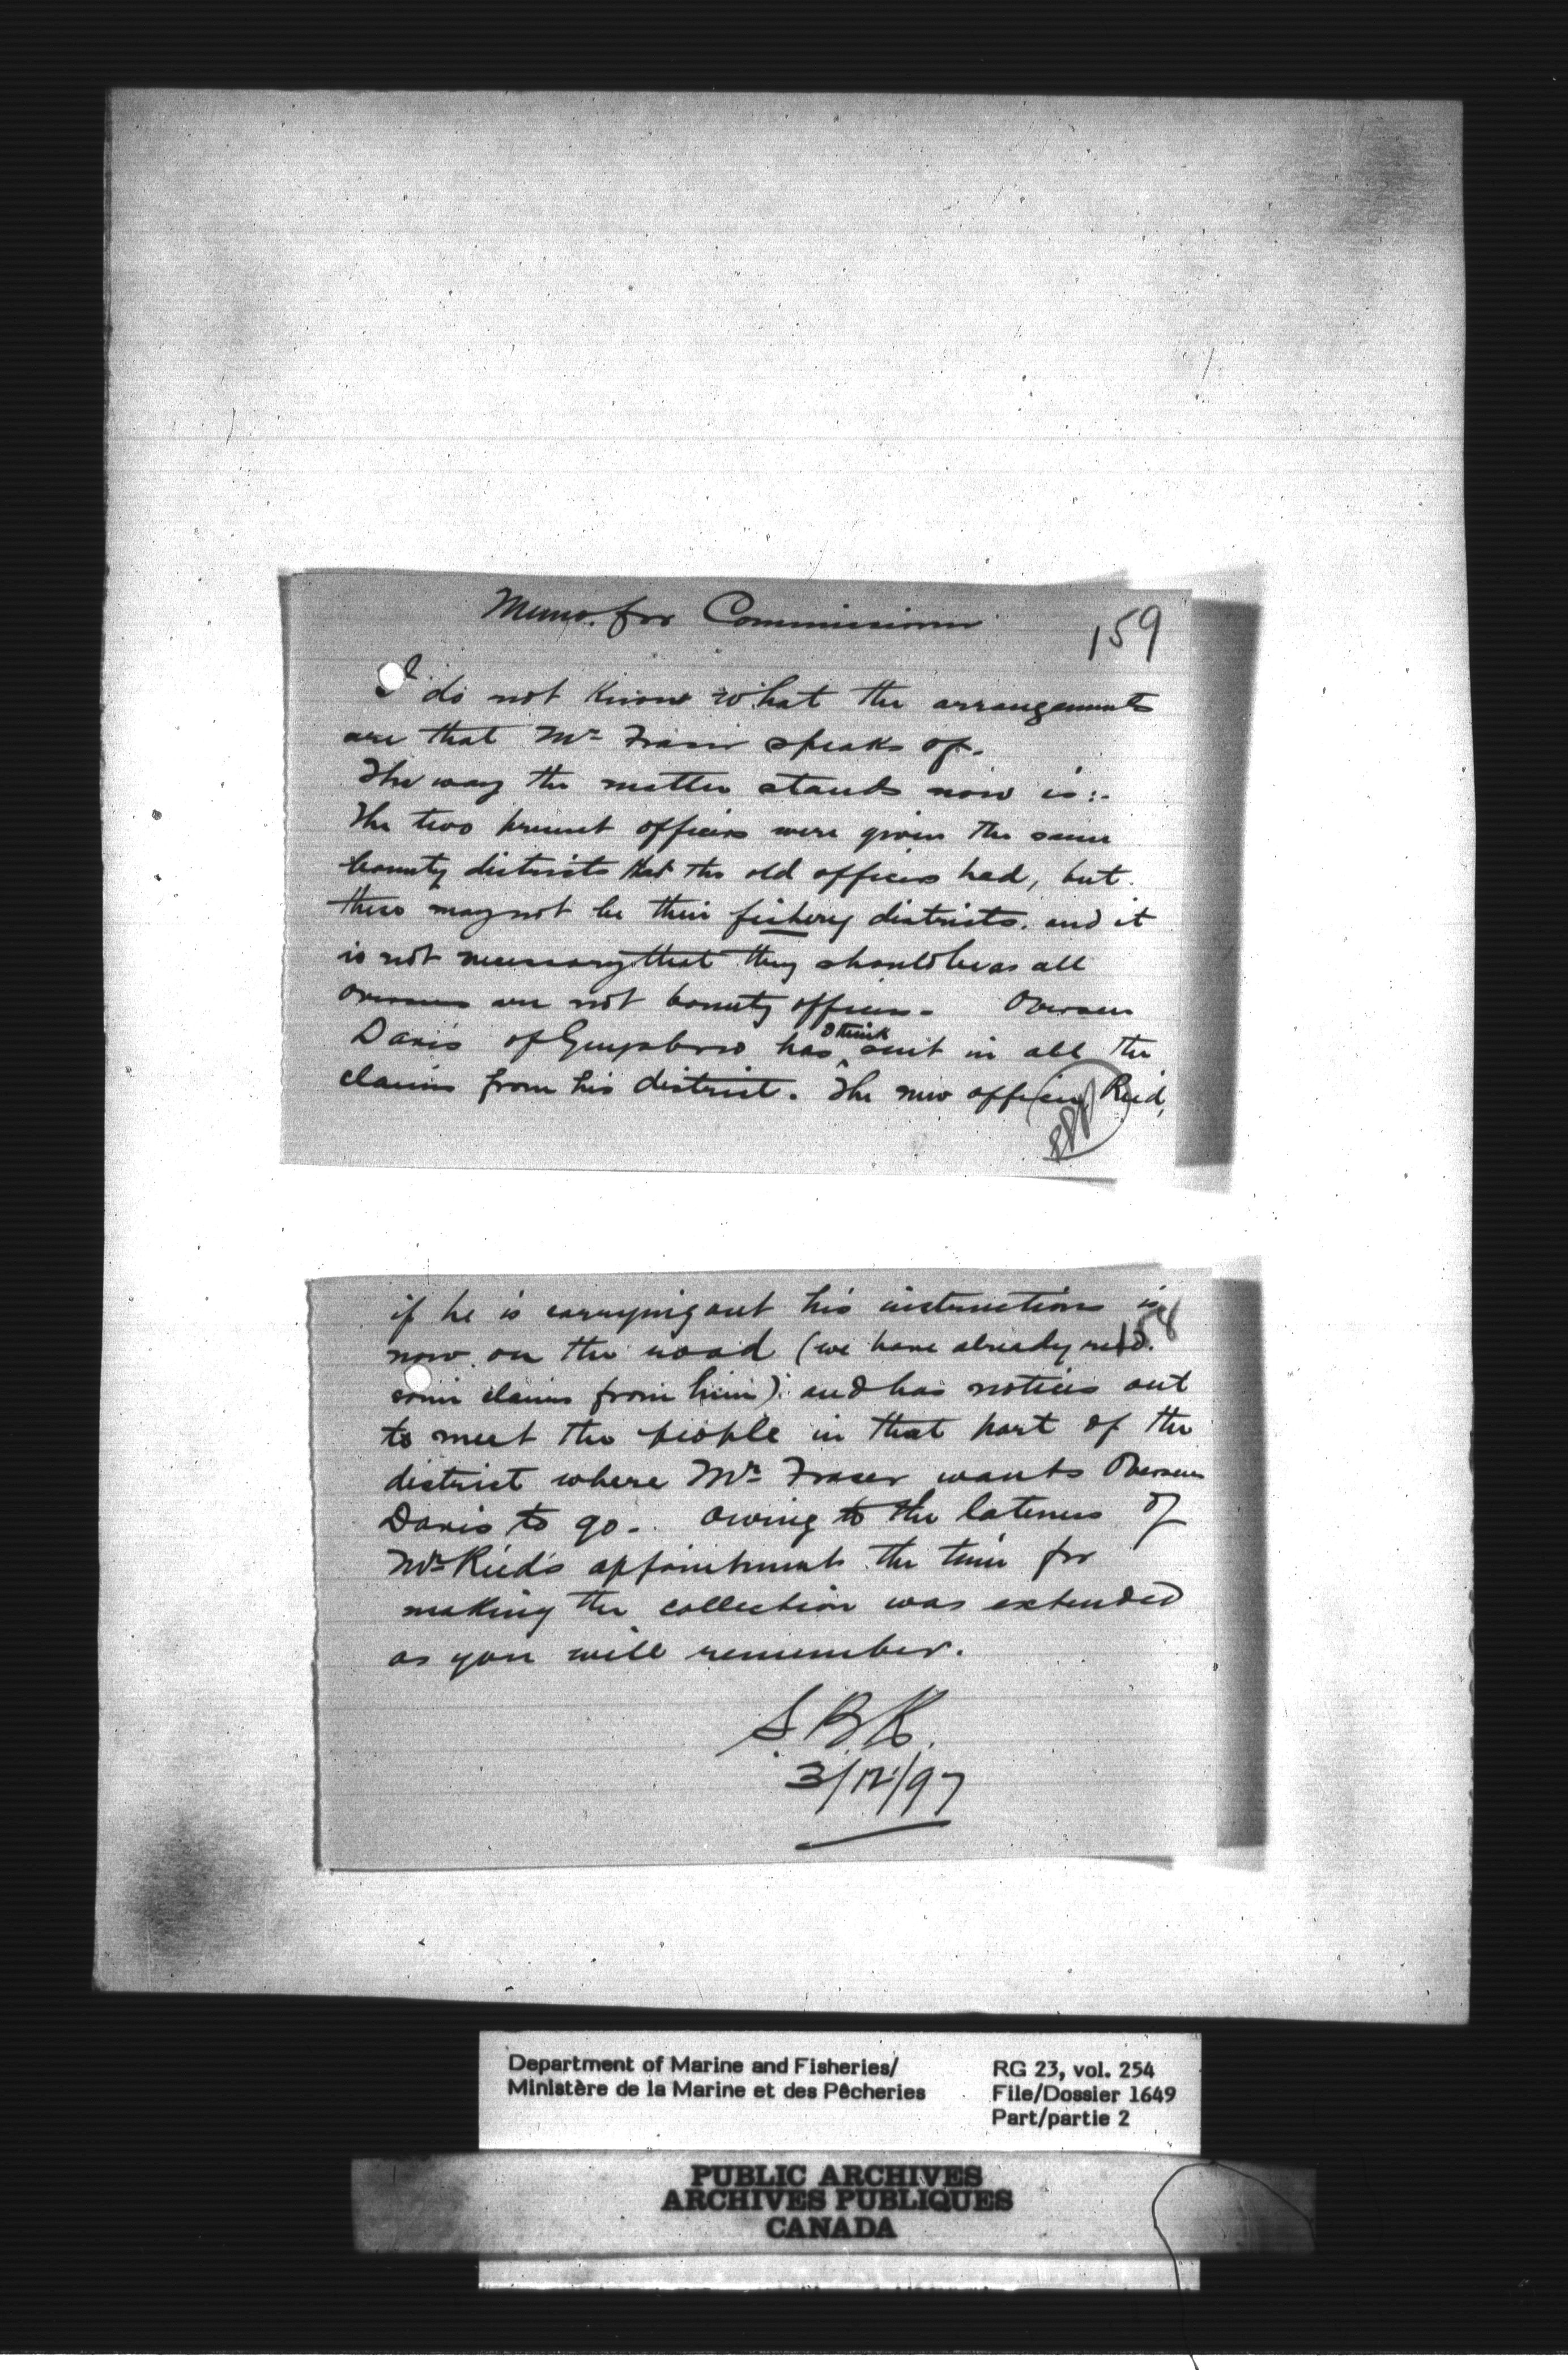 Memo. for Commissioner
159
I do not know what the arrangements
are that Mr Fraser speaks of.
The way the matter stands now is:-
The two present officers were given the same
bounty districts that the old officers had, but
these may not be their fishery districts. and it
is not necessary that they should be as all
overseers are not bounty officers. Overseer
Davis of Guysboro has I think sent in all the
claims from his district. The new officer Reid,
if he is carrying out his instructions is
158
now on the road (we have already recd.
some claims from him) and has notices out
to meet the people in that part of the
district where Mr Fraser wants Overseer
Davis to go. Owing to the lateness of
Mr Reid's appointment the time for
making the collection was extended
as you will remember.
S.B.K.
3/12/97
Department of Marine and Fisheries/
Ministère de la Marine et des Pêcheries
RG 23, vol. 254
File/Dossier 1649
Part/partie 2
PUBLIC ARCHIVES
ARCHIVES PUBLIQUES
CANADA